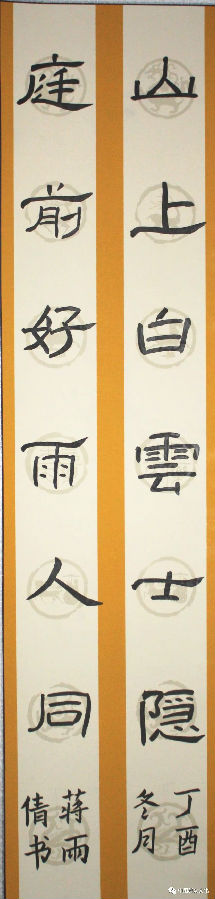 山上白雲士隐
丁酉
冬月
庭前好雨人同
蒋雨
倩书